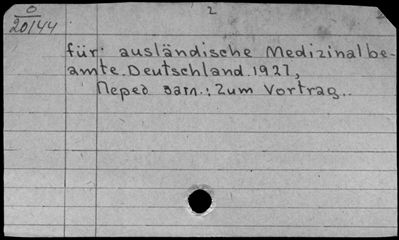 0 2
20/44
für ausländische Medizinalbe-
amte. Deutschland. 1927,
Перед загл.: Zum Vortrag..